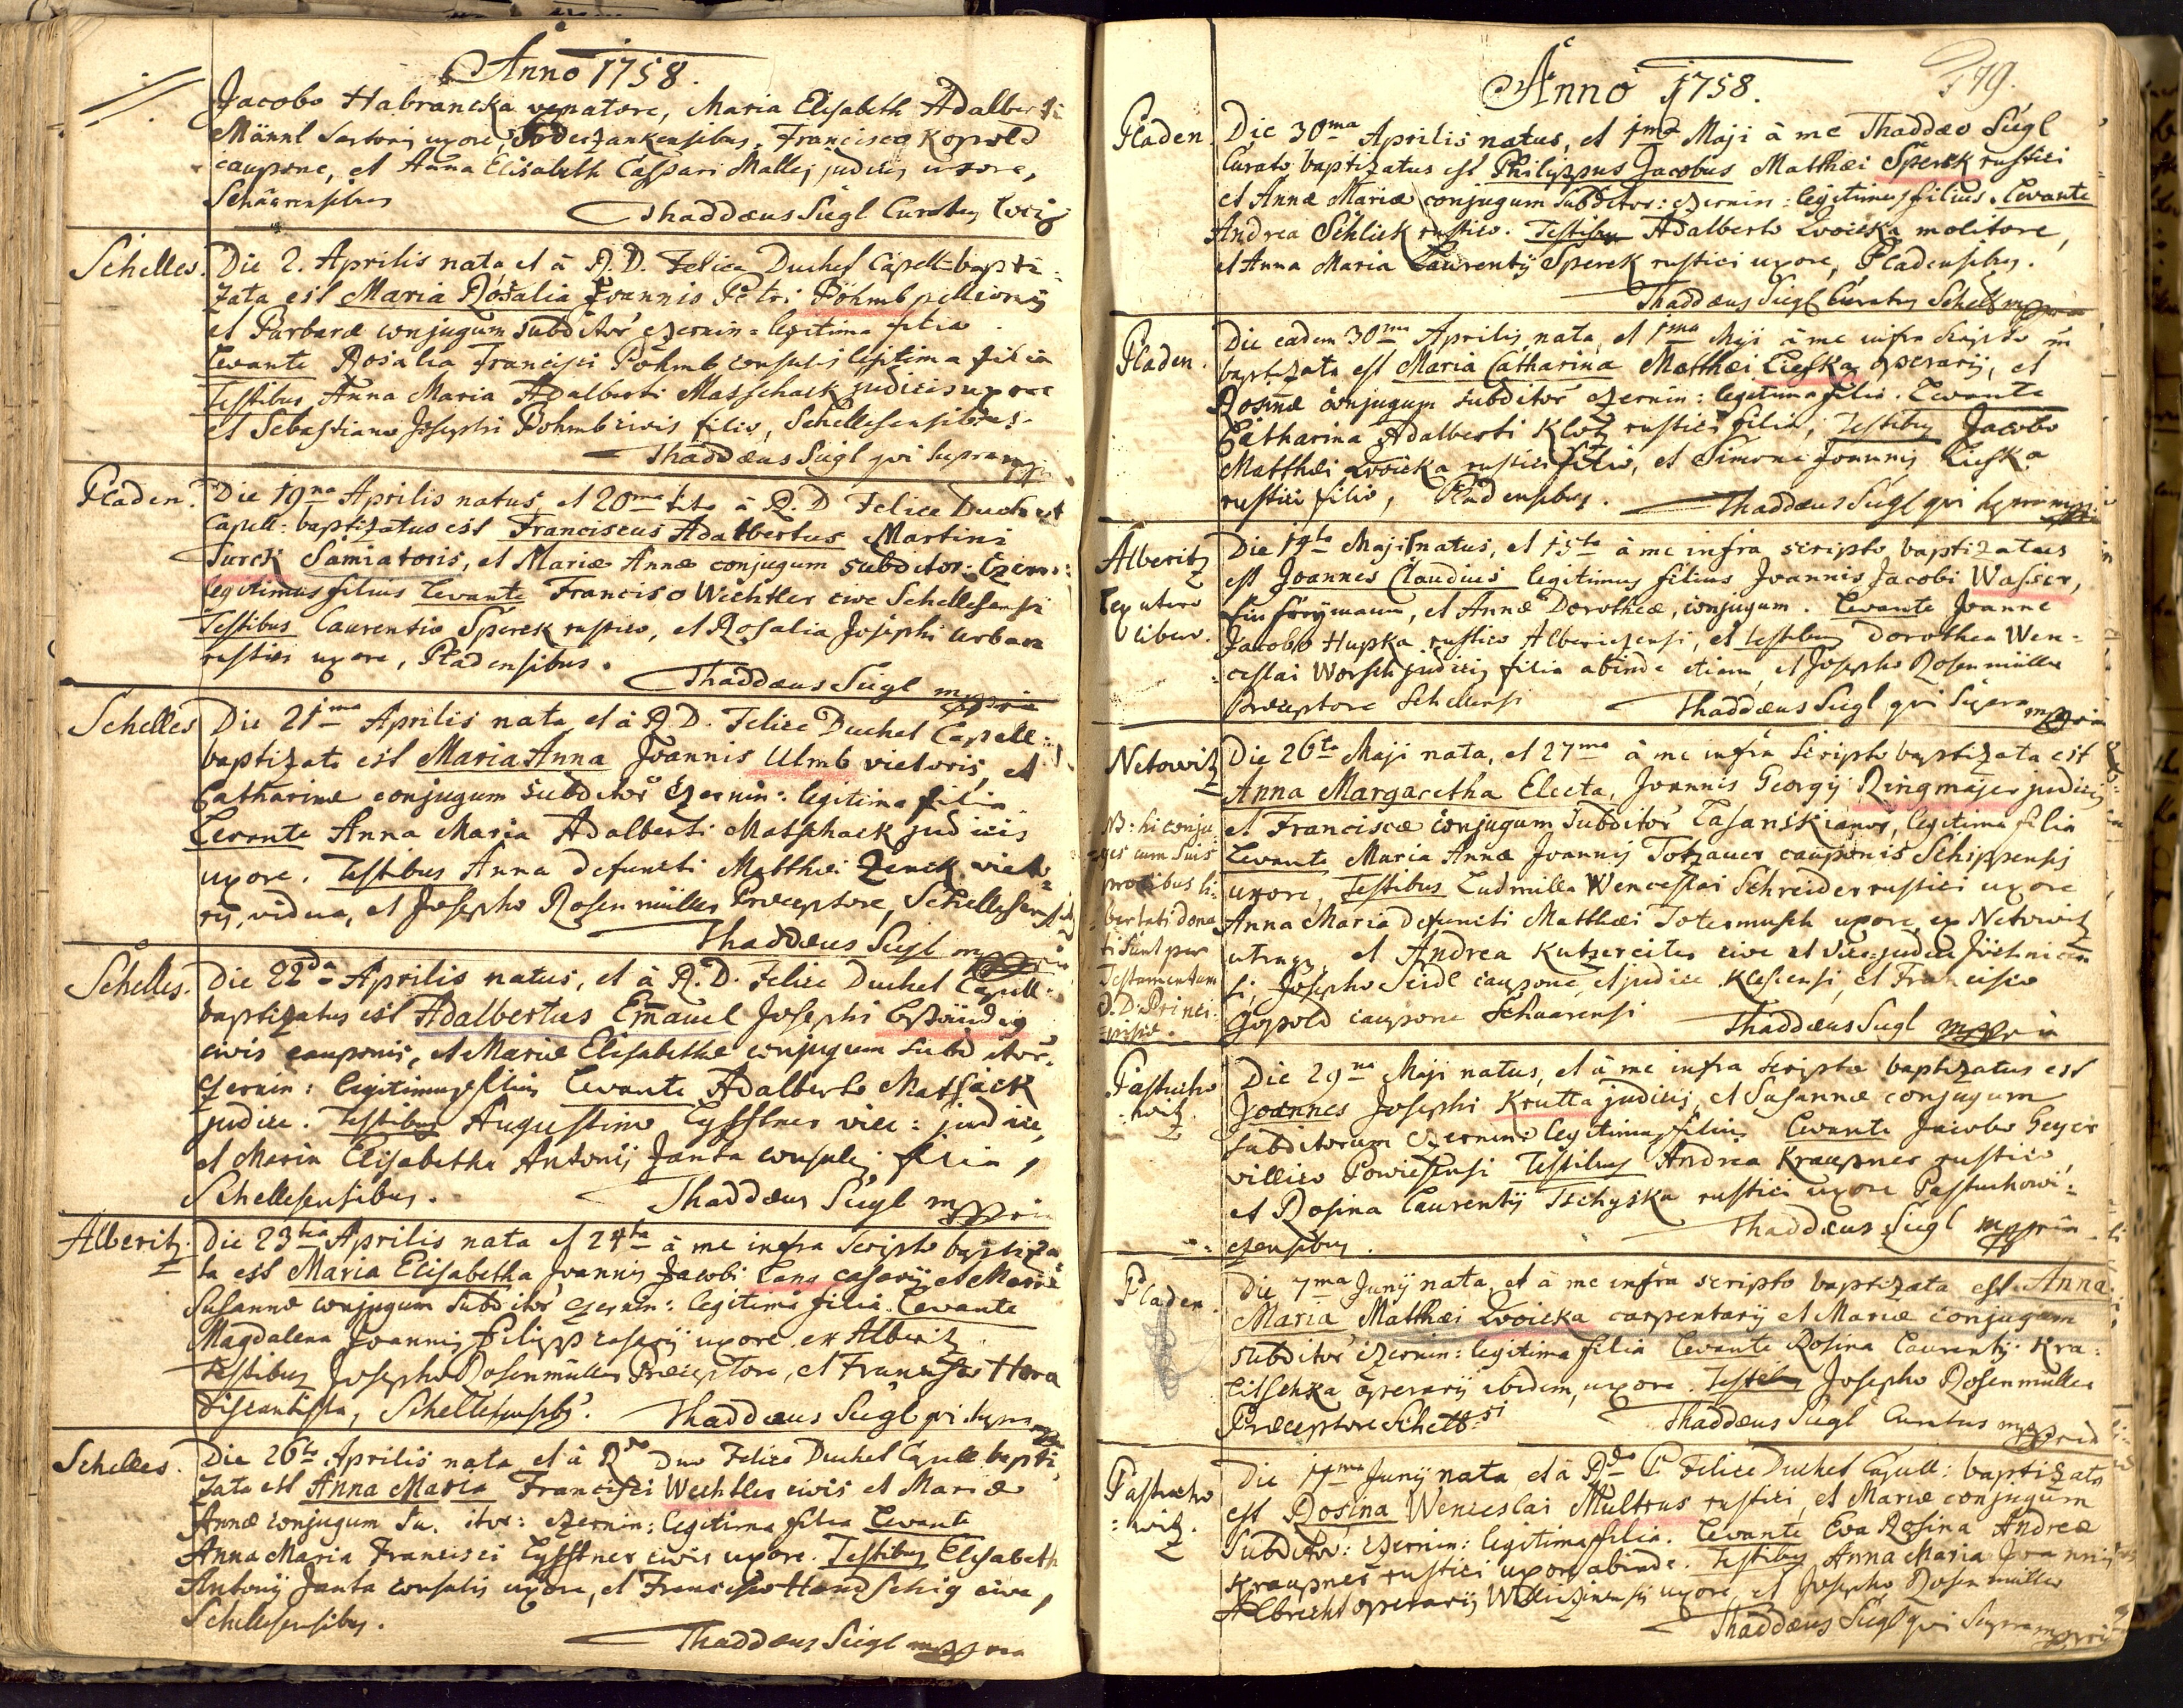 Anno 1758.
Jacobo Habrancka venatore, Maria Elisabeth Adalberti
Männl sartoris uxore, Francisco Kopold
caupone, et Anna Elisabeth Caspari Mallej judicis uxore,
Schaarensibus
Thaddæus Siegl Curatus loci
Schelles. Die 2. Aprilis nata, et à R. D. Felice Duchet Capell: bapti:
zata est Maria Rosalia Joannis Petri Böhmb pellionis
et Barbaræ conjugum subditor czernin: legitima filia
Levante Rosalia Francisci Pohmb consulis legitima filia
Testibus Anna Maria Adalberti Masschack judicis uxore
et Sebastiano Josephi Bohmb civis filio, Schellesensibus.
Thaddæus Siegl qui supra mppria
Pladen. Die 19na Aprilis natus, et 20ma à R. D Felice Duchet
Capell: baptizatus est Franciscus Adalbertus Martini
Turek Samiatoris, et Mariæ Annæ conjugum subditor: Czern:
legitimus filius Levante Francisco Wechtler cive Schellesensi
Testibus Laurentio Sperek rustico, et Rosalia Josephi Urban
rustici uxore, Pladensibus.
Thaddæus Siegl mppria
Schelles Die 21ma Aprilis nata, et à R. D. Felice Duchet Capell:
baptizata est Maria Anna Joannis Ulmb vietoris, et
Catharinæ conjugum subditor czernin: legitima filia
Levante Anna Maria Adalberti Matschack judicis
uxore. Testibus Anna defuncti Matthæi Zenck vieto:
ris, vidua, et Josepho Rosenmüller Præceptore, Schellesensibus
Thaddæus Siegl mppria
Schelles. Die 22da Aprilis natus, et à R. D. Felice Duchet Capell:
baptizatus est Adalbertus Emanuel Josephi
civis cauponis, et Mariæ Elisabethæ conjugum subditor:
czernin: legitimus filius Levante Adalberto Massack
judice. Testibus Augustino Eyssstner vice: judice,
et Maria Elisabetha Antonij Janta consulis filia,
Schellesensibus. Thaddæus Siegl mppria
Alberitz. Die 23tia Aprilis nata et 24ta à me infra scripto baptiza
ta est Maria Elisabetha Joannis Jacobi Lang casarij et Mariæ
Susannæ conjugum subditor czernin: legitima filia. Levante
Magdalena Joannis Filipp casarij uxore ex Alberitz
Testibus Josepho Rosenmüller Præceptore, et Francisco Hora
Discantista, Schellesensibs. Thaddæus Siegl qui supra mppria
Schelles. Die 26ta Aprilis nata et à Rdo Dno Felice Duchet Capell bapti
zata est Anna Maria Francisci Wechtler civis et Mariæ
Annæ conjugum Su. itor: czernin: legitima filia Levante
Anna Maria Francisci Eyssstner civis uxore. Testibus Elisabeth
Antonij Janta consulis uxore, et Francisco Handschig cive,
Schellesensibus.
Thaddæus Siegl mppria
Anno 1758.
179.
Pladen. Die 30ma Aprilis natus, et 1ma Maji à me Thaddæo Siegl
Curato baptizatus est Philippus Jacobus Matthæi Sperek rustici
et Annæ Mariæ conjugum Subditor: czernin: legitimus filius. Levante
Andrea Schlick rustico. Testibus Adalberto Zwoicka molitore,
et Anna Maria Laurentij Sperek rustici uxore, Pladensibus.
Thaddæus Siegl Curatus Schell mppria
Pladen. Die eadem 30ma Aprilis nata, et 1ma Maji à me infra scripto
baptizata est Maria Catharina Matthæi Lieska operarij, et
Rosinæ conjugum subditor czernin: legitima filia. Levante
Catharina Adalberti Klotz rustici filia, Testibus Jacobo
Matthæi Zwoicka rustici filio, et Simone Joannis Lieska
rustici filio, Pladensibus. Thaddæus Siegl qui supra mppria
Alberitz
Ex utero
libero.
Die 14ta Maji natus, et 15ta à me infra scripto baptizatus
est Joannes Claudius legitimus filius Joannis Jacobi Wasser,
et Annæ Dorotheæ, conjugum. Levante Joanne
Jacobo Hupka rustico Albericzensi, et testibus Dorothea Wen=
ceslai Worsch judicis filia abinde etiam, et Josepho Rosenmüller
Præceptore Schellensi Thaddæus Siegl qui supra mppria
Netowitz
NB: hi conju
ges cum suis
prolibus li:
bertati dona
ti sunt per
Testamentum
D. D. Princi:
pissæ.
Die 26ta Maji nata, et 27ma à me infra scripto baptizata est
Anna Margaretha Electa, Joannis Georgij Ringmajer judicis
et Franciscæ conjugum subditor Lasanskianor, legitima filia
Levante Maria Anna Joannis Totzauer cauponis Schippensis
uxore, Testibus Ludmilla Wenceslai Schreider rustici uxore
Anna Maria defuncti Matthæi Totermusch uxore, ex Netowitz
utraqe, et Andrea Kutzereiter cive et vice judice
si, Josepho Seidl caupone, et judice Klescensi, et Francisco
Gopold caupone Schaarensi Thaddæus Siegl mppria
Pastucho
witz.
Die 29na Maji natus, et à me infra scripto baptizatus est
Joannes Josephi Krutta judicis, et Susannæ conjugum
subditorum czernin: legitimus filius Levante Jacobo Geyer
villico Testibus Andrea Kraupner rustico,
et Rosina Laurentij Tschyska rustici uxore Pastuchowi:
czensibus. Thaddæus Siegl mppria
Pladen. Die 7ma Junij nata, et à me infra scripto baptizata est Anna
Maria Matthæi Zwoicka carpentarij et Mariæ conjugum
subditor czernin: legitima filia Levante Rosina Laurentij Kra:
litschka operarij ibidem, uxore. Testibus Josepho Rosenmüller
Præceptore Schell:si Thaddæus Siegl Curatus mppria
Pastucho
=witz.
Die 11ma Junij nata et à Rdo P. Felice Duchet Capell: baptizata
est Rosina Wenceslai Multrus rustici, et Mariæ conjugum
Subditor: czernin: legitima filia. Levante Eva Rosina Andreæ
Kraupner rustici uxore abinde. Testibus Anna Maria Joannis
Albrecht operarij uxore, et Josepho Rosenmüller
Thaddæus Siegl qui supra mppria